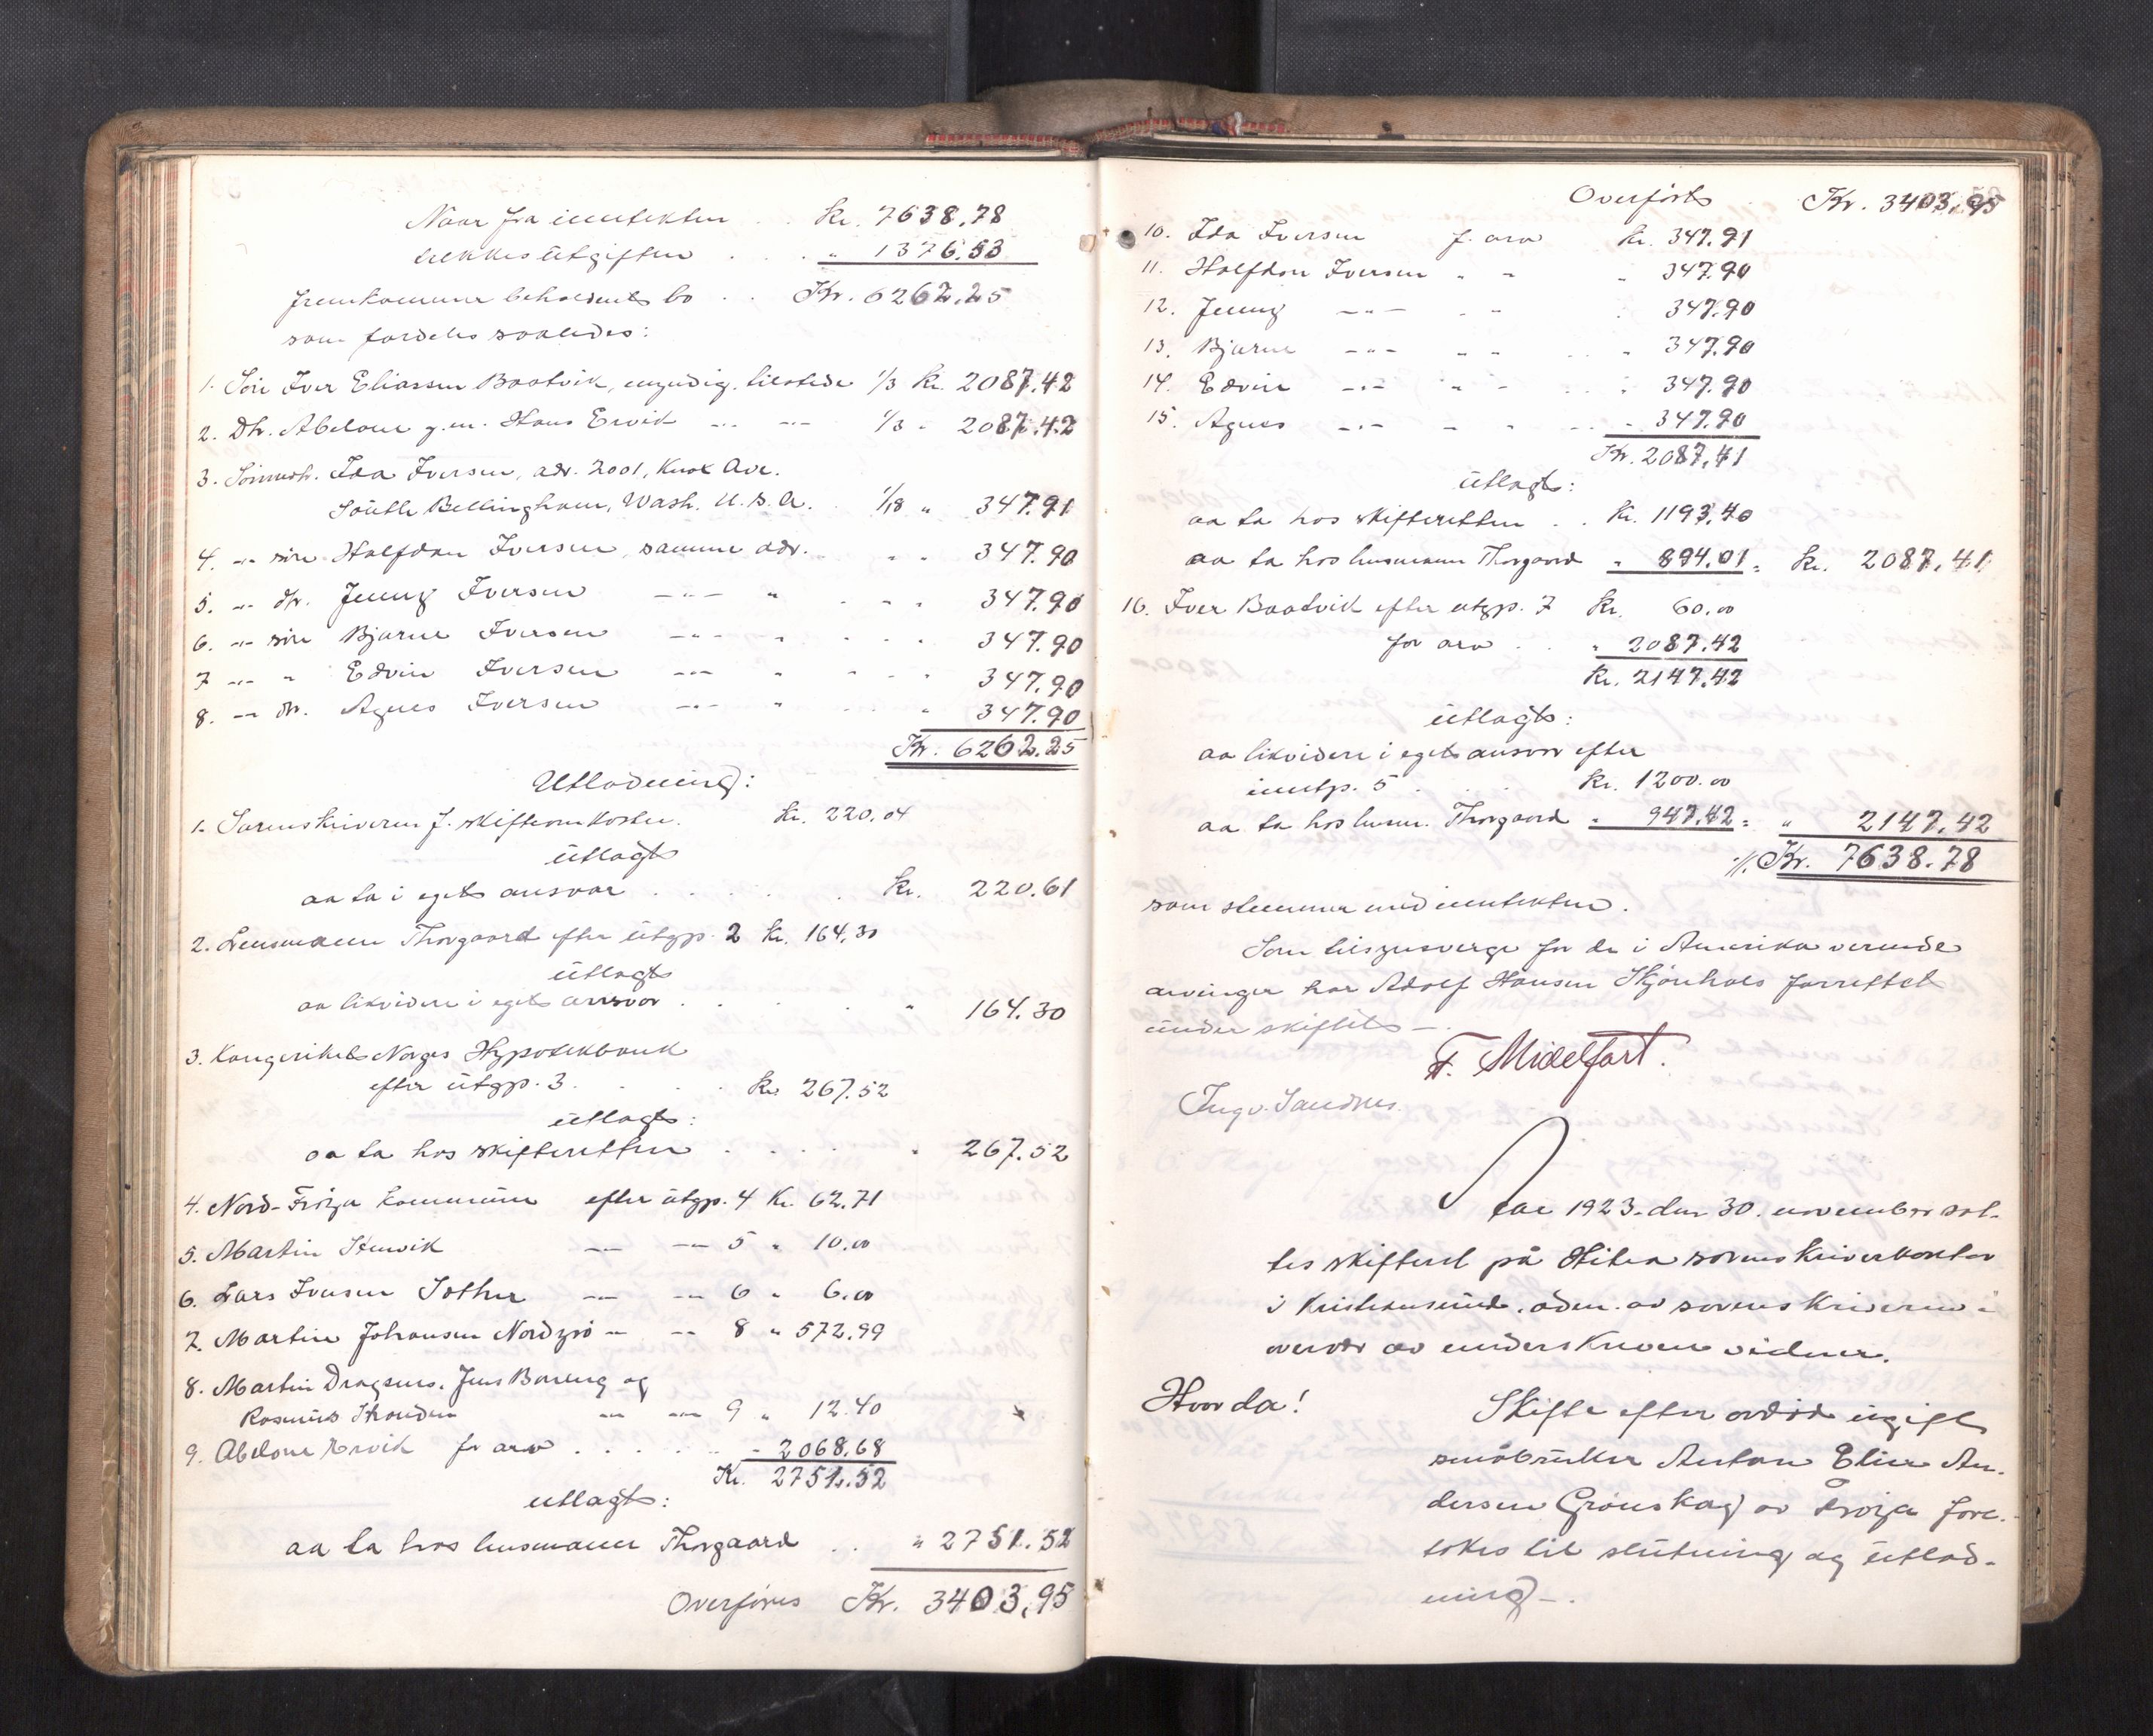 Naar fra inntekten . . Kr. 7638.78
trekkes utgiften . . . " 1376.53
fremkommer beholdent bo . . Kr. 6262.25
som fordeles saaledes:
1. Sön Iver Eliassen Baatvik, myndig, tilstede 1/3 Kr. 2087.42
2. Dtr. Abelone g.m. Hans Ervik -"- -"- 1/3 " 2087.42
3. Sönnedtr. Ida Iversen, adr. 2001, Knox Ave.
South Bellingham, Wash. U.S.A. . 1/18 " 347.91
4. -"- sön Halfdan Iversen, samme adr. . " " 347.90
5. -"- dtr. Jenny Iversen -"- " . " " 347.90
6. -"- sön Bjarne Iversen -"- " . . . " 347.90
7 -"- " Edvin Iversen -"- " . . " 347.90
8. -"- dtr. Agnes Iversen -"- " . . " 347.90
Kr. 6262.25
Utlodning:
1. Sorenskriveren f. skifteomkostn. Kr. 220.04
utlagt
aa ta i eget ansvar . . . . . Kr. 220.61
2. Lensmann Thorgaard efter utgp. 2 Kr. 164.30
utlagt
aa likvidere i eget ansvar . . . . " 164.30
3. Kongeriket Norges Hypotekbank
efter utgp. 3 . . . . Kr. 267.52
utlagt:
aa ta hos skifteretten . . . . . " 267.52
4. Nord-Fröya kommune efter utgp. 4 Kr. 62.71
5. Martin Stenvik -"- -"- 5 " 10.00
6. Lars Iversen Sother -"- -"- 6 " 6.00
7. Martin Johansen Nordyrö -"- -"- 8 " 572.99
8. Martin Dragsnes, Jens Bareng og
Rasmus Skonden -"- -"- 9 " 12.40
9. Abelone Ervik for arv . . . . . . " 2068.68
Kr. 2751.52
utlagt:
aa ta hos lensmann Thorgaard . . " 2751.52
Overföres Kr. 3403,95
Overfört Kr. 3403,95
10. Ida Iversen f. arv Kr. 347.91
11. Halfdan Iversen " " " 347.90
12. Jenny -"- " " . 347.90
13. Bjarne -"- " " . . " 347.90
14. Edvin -"- " " . . " 347.90
15. Agnes -"- " " . . " 347.90
Kr. 2087,41
utlagt:
aa ta hos skifteretten . . Kr. 1193,40
aa ta hos lensmann Thorgaard " 894.01 = Kr. 2087,41
16. Iver Baatvik efter utgp. 7 Kr. 60.00
for arv . . " 2087.42
Kr. 2147.42
utlagt:
aa likvidere i eget ansvar efter
inntp. 5 . . . Kr. 1200.00
aa ta hos lensm. Thorgaard " 947.42 = " 2147,42
./. Kr. 7638.78
som stemmer med inntekten.
Som tilsynsverge for de i Amerika værende
arvinger har Adolf Hansen Skjönhals forrettet
under skiftet -.
F. Midelfart.
Ingv. Sandnes.
Aar 1923. den 30. november sat-
tes skifteret på Hitra sorenskriverkontor
i Kristiansund, adm. av sorenskriveren i
overvær av underskrevne vidner.
Hvor da!
Skifte efter avdöde ugift
småbruker Anton Elias An-
dersen Grönskag av Fröya fore-
tokes til slutning og utlod-
ning -.